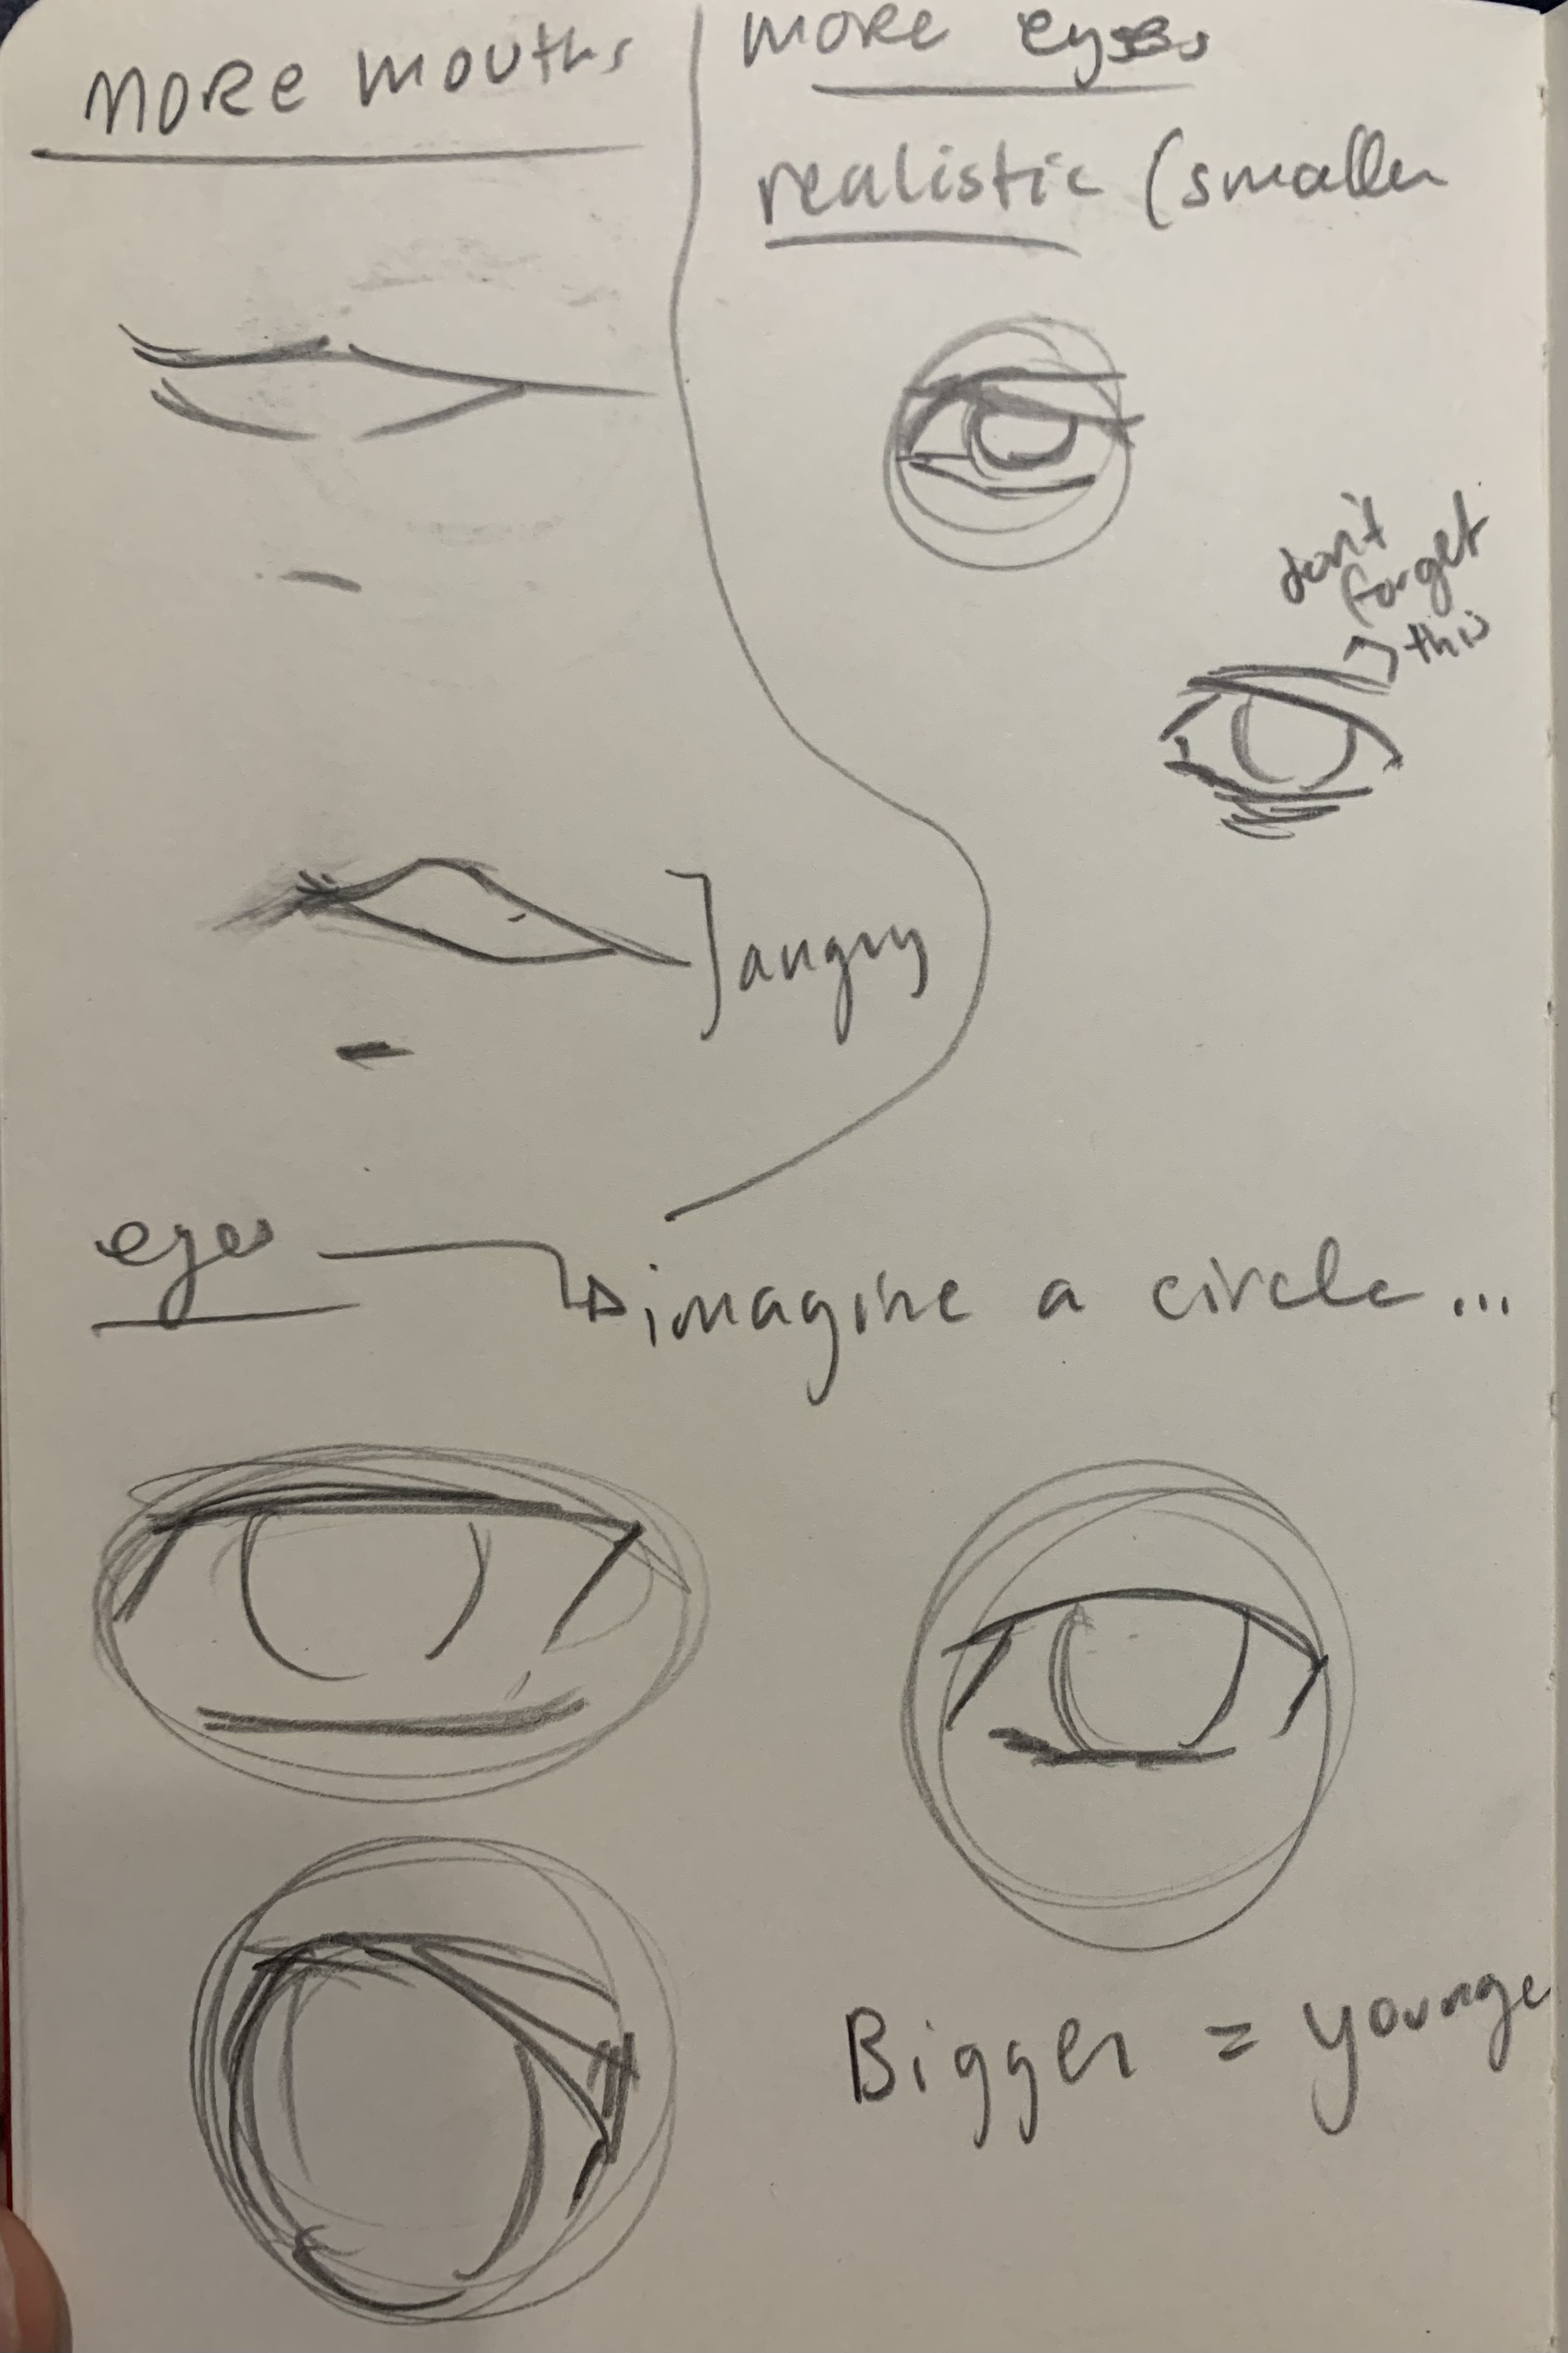 more mouths
angry
more eyes
realistic (smaller
don't
forget
this
eyes
imagine a circle...
Bigger = younge